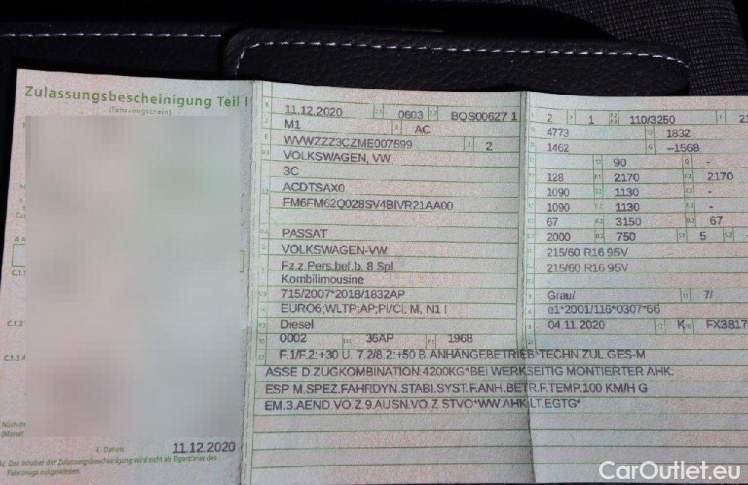 Zulassungsbescheinigung Teil I
(Fahrzeugschein)
11.12.2020 0603 BQS00627 1
M1 AC
WVWZZZ3CZME007599 2
VOLKSWAGEN, VW
3C
ACDTSAX0
FM6FM62Q028SV4BIVR21AA00
PASSAT
VOLKSWAGEN-VW
Fz.z.Pers.bef.b. 8 Spl.
Kombilimousine
715/2007*2018/1832AP
EURO6;WLTP;AP;PI/CI, M, N1 I
Diesel
0002 36AP 1968
2 1 110/3250
4773 1832
1462 –1568
90 -
128 2170 2170
1090 1130 -
1090 1130 -
67 3150 67
2000 750 5 -
215/60 R16 95V
215/60 R16 95V
Grau/ 7/
e1*2001/116*0307*66
04.11.2020 K FX3817
F.1/F.2:+30 U. 7.2/8.2:+50 B.ANHÄNGEBETRIEB*TECHN.ZUL.GES-M
ASSE D.ZUGKOMBINATION 4200KG*BEI WERKSEITIG MONTIERTER AHK:
ESP M.SPEZ.FAHRDYN.STABI.SYST.F.ANH.BETR.F.TEMP.100 KM/H G
EM.3.AEND.VO.Z.9.AUSN.VO.Z.STVO*WW.AHK LT.EGTG*
C.1.1
C.1.2
C.1.3
I. Datum 11.12.2020
Der Inhaber der Zulassungsbescheinigung wird nicht als Eigentümer des
Fahrzeugs ausgewiesen.
CarOutlet.eu